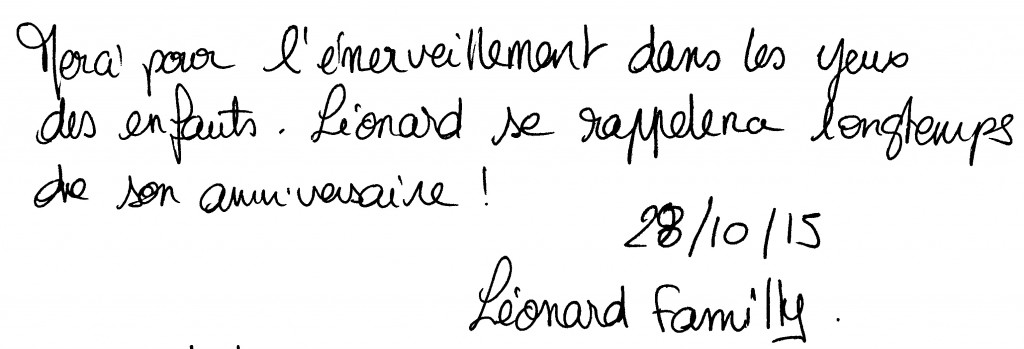 Merci pour l'émerveillement dans les yeux
des enfants. Léonard se rappelera longtemps
de son anniversaire !
28/10/15
Léonard familly.